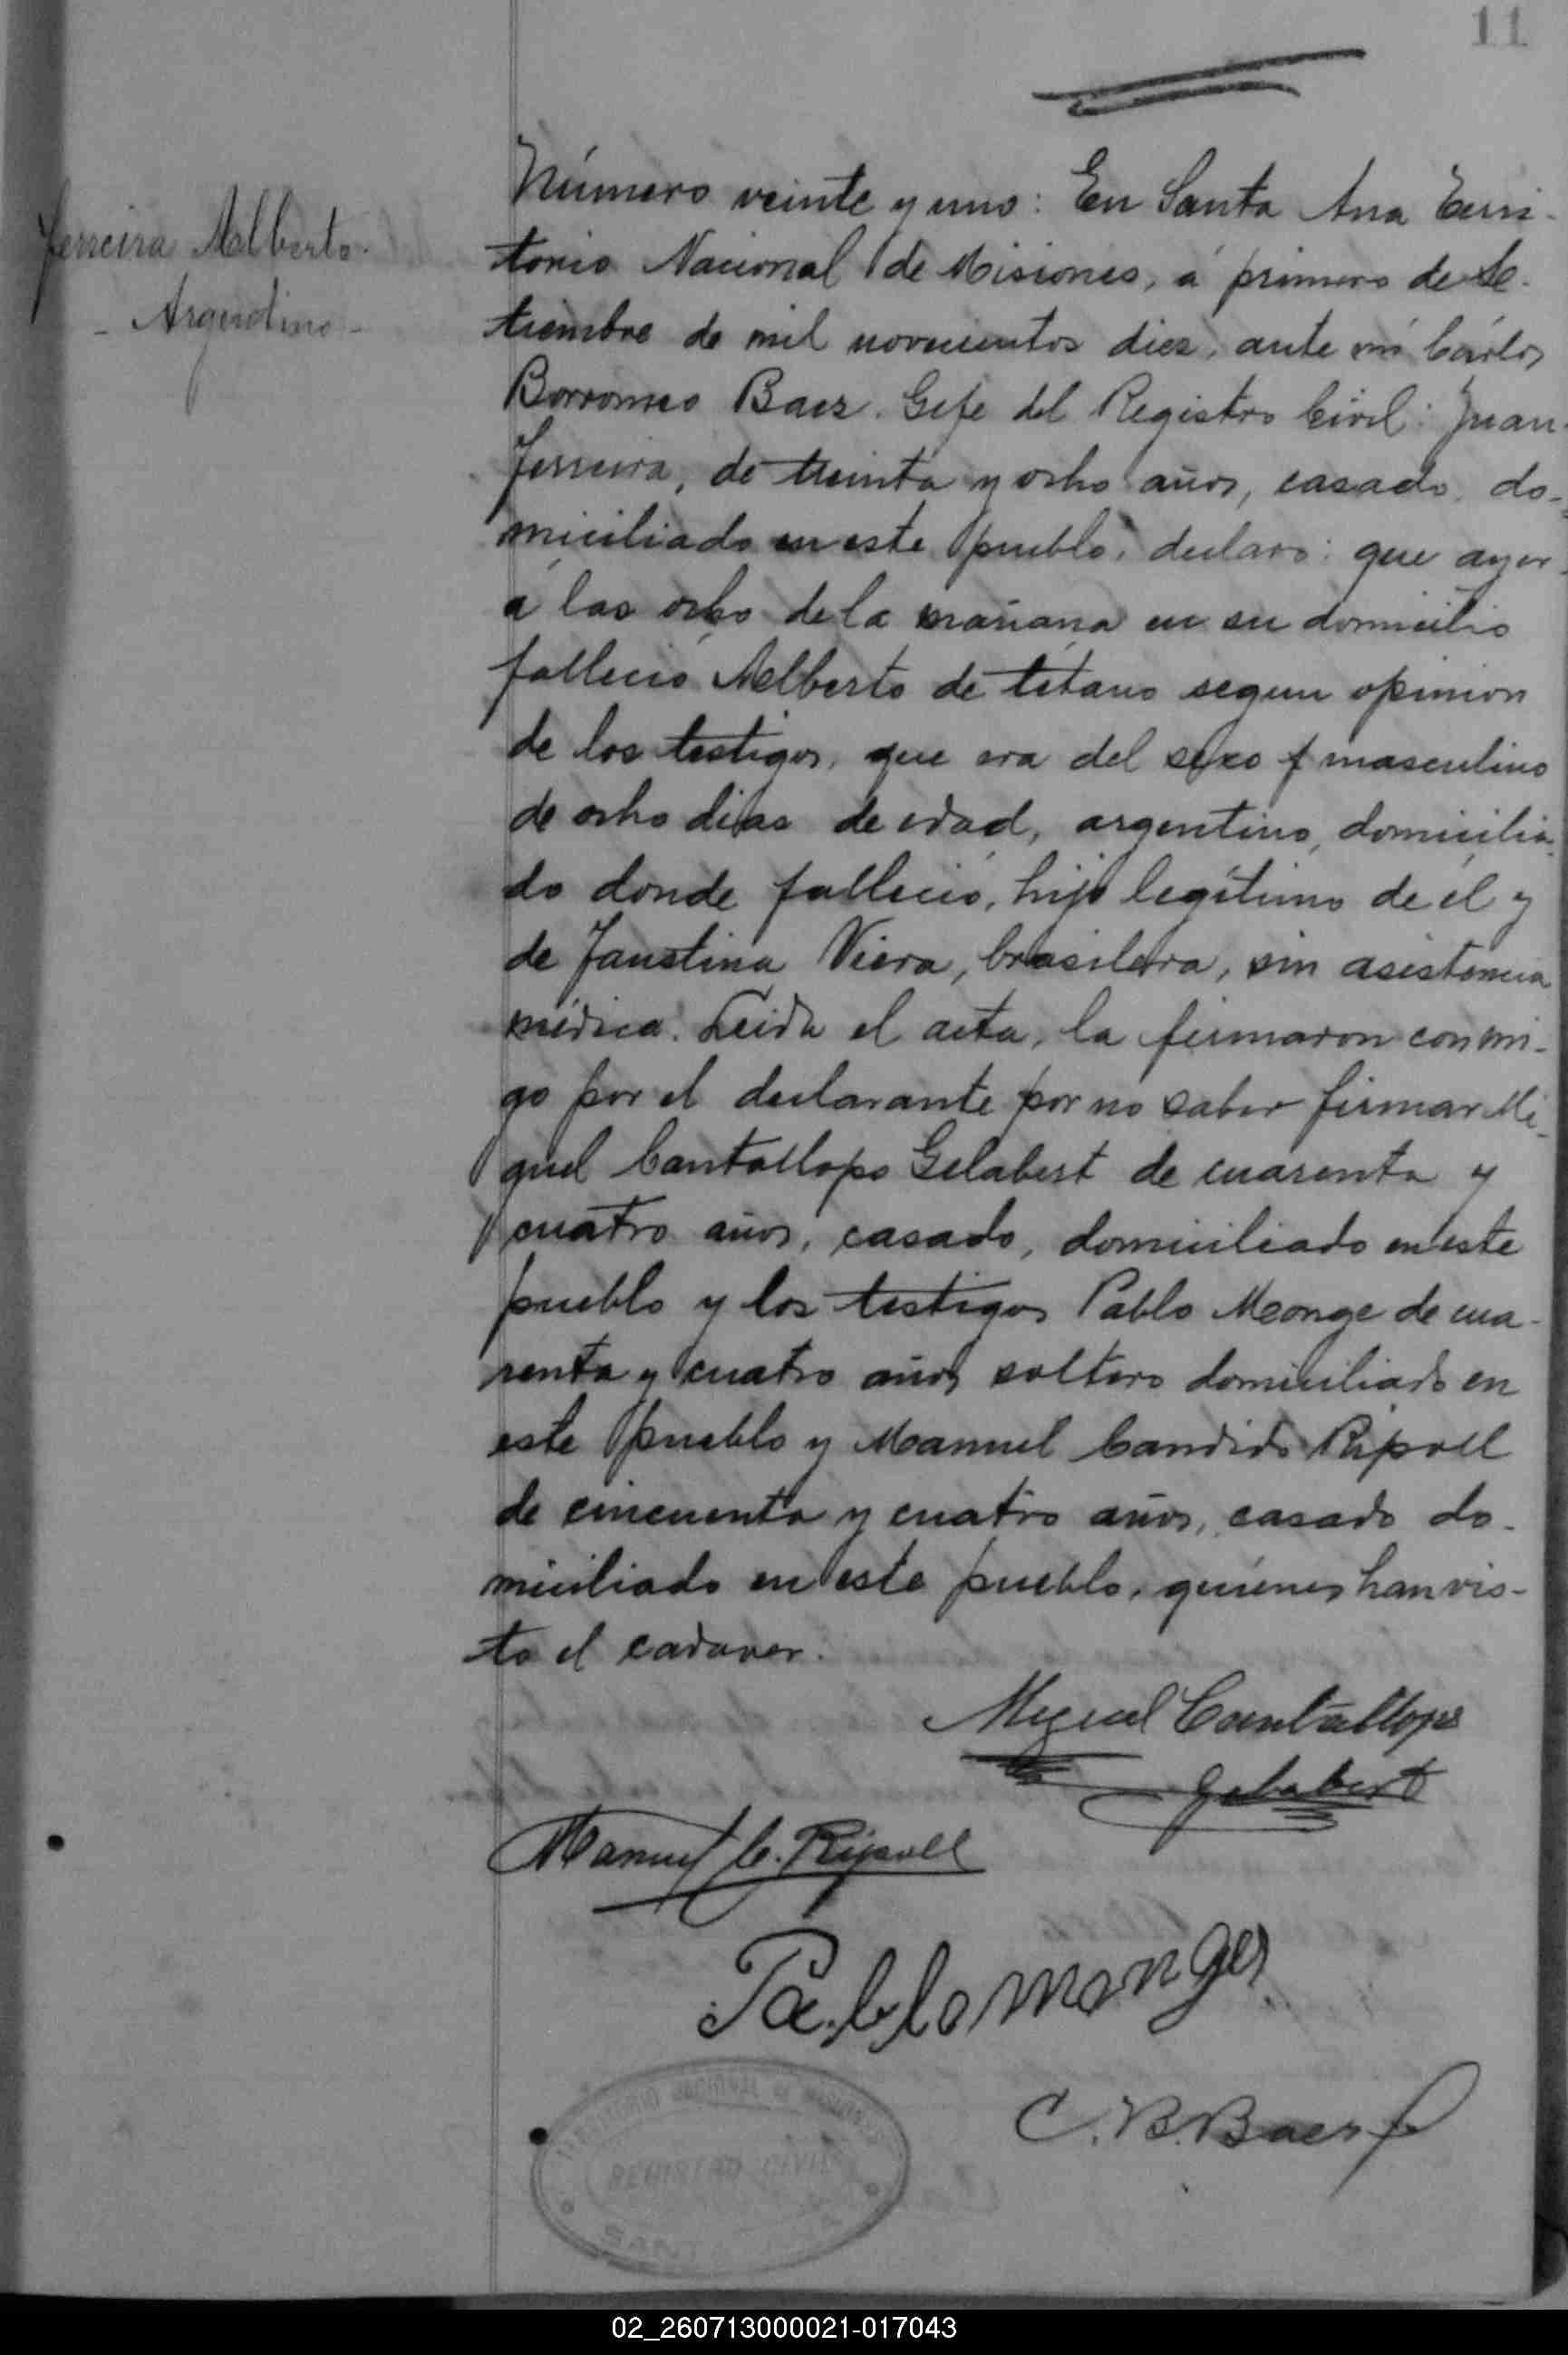 11
Ferreira Alberto
- Argentino -
Número veinte y uno: En Santa Ana Terri-
torio Nacional de Misiones, á primero de Se-
tiembre de mil novecientos diez, ante mí Cárlos
Borromeo Baez. Gefe del Registro Civil: Juan
Ferreira, de treinta y ocho años, casado, do-
miciliado en este pueblo, declaro: que ayer
á las ocho de la mañana en su domicilio
falleció Alberto de tétano segun opinion
de los testigos, que era del sexo f masculino
de ocho dias de edad, argentino, domicilia-
do donde falleció, hijo legítimo de él y
de Faustina Viera, brasilera, sin asistencia
médica. Leida el acta, la firmaron conmi-
go por el declarante por no saber firmar Mi-
guel Cantallops Gelabert de cuarenta y
cuatro años, casado, domiciliado en este
pueblo y los testigos Pablo Monge de cua-
renta y cuatro años soltero domiciliado en
este pueblo y Manuel Candido Ripoll
de cincuenta y cuatro años, casado do-
miciliado en este pueblo, quienes han vis-
to el cadaver.
Miguel Cantallops
Gelabert
Manuel C. Ripoll
Pablo monges
C. B. Baez
TERRITORIO NACIONAL DE MISIONES
REGISTRO CIVIL
SANTA ANA
02_260713000021-017043